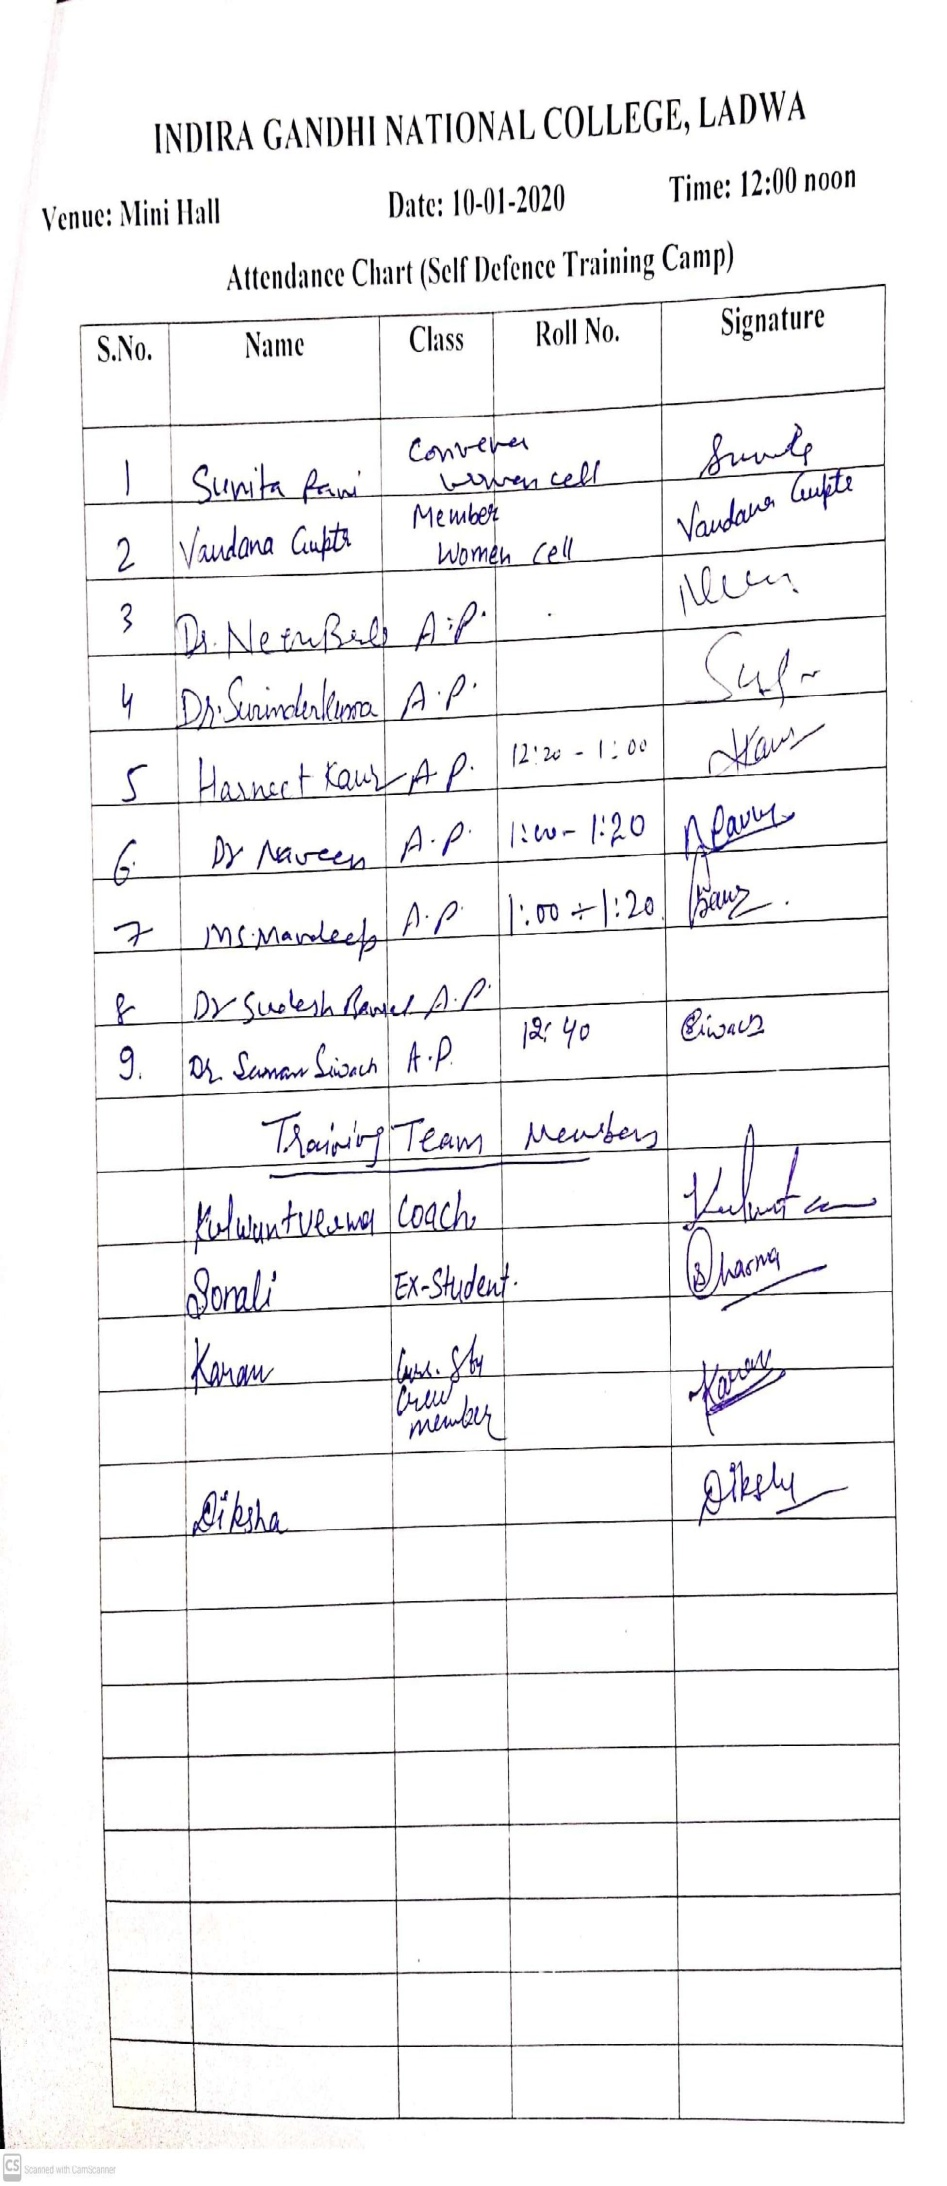 INDIRA GANDHI NATIONAL COLLEGE, LADWA
Venue: Mini Hall Date: 10-01-2020 Time: 12:00 noon
Attendance Chart (Self Defence Training Camp)
S.No. Name Class Roll No. Signature
1 Sunita Rani Convener women cell
2 Vandana Gupta Member Women Cell Vandana Gupta
3 Dr. Neetu Bala A.P.
4 Dr. Surinder A.P.
5 Harneet Kaur A.P. 12:20 - 1:00 Kaur
6. Dr Naveen A.P. 1:00 - 1:20
7 Ms. Mandeep A.P. 1:00 ÷ 1:20 Kaur
8 Dr Sudesh A.P.
9. Dr. Suman Siwach A.P. 12:40 Siwach
Training Team Members
Kulwant verma Coach
Sonali Ex-Student. Sharma
Karan Karan
Crew
member
Diksha
CS Scanned with CamScanner